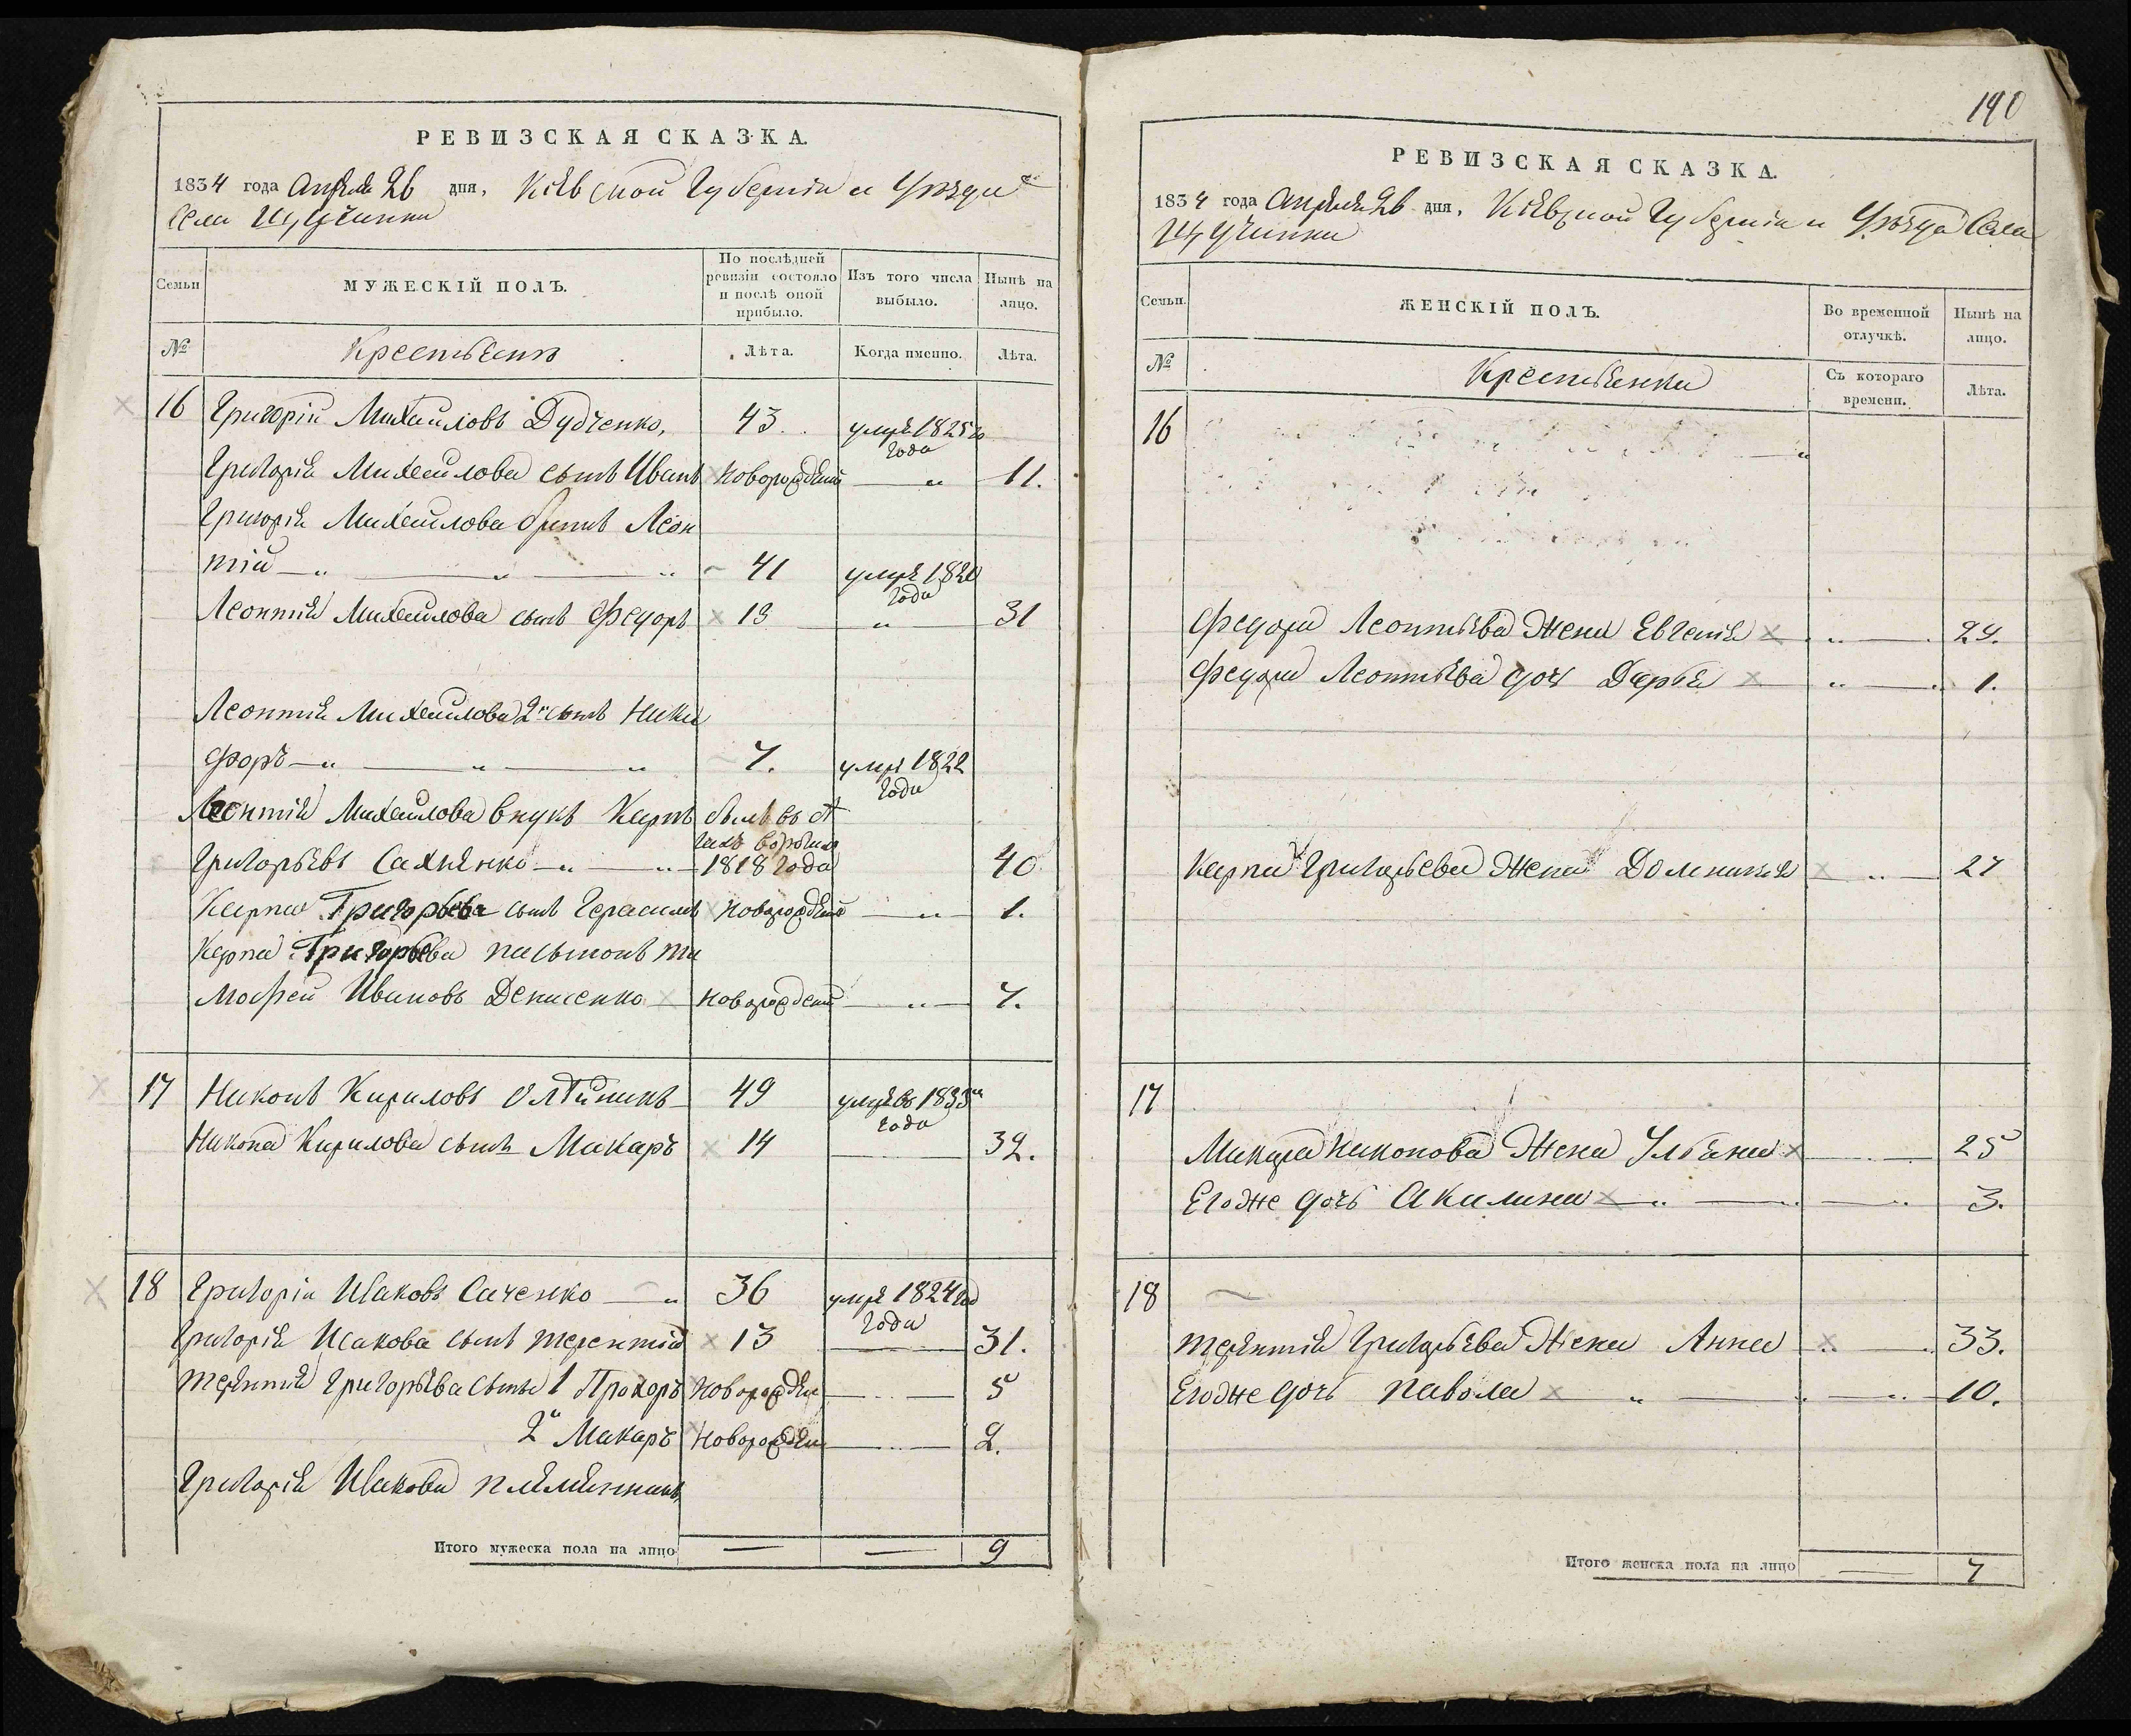 РЕВИЗСКАЯ СКАЗКА.
1834 года Апреля 26 дня, Кіевской Губерніи и Уѣзда
Села Щучинки
Семьи
МУЖЕСКІЙ ПОЛЪ.
По послѣдней ревизіи состояло и послѣ оной прибыло.
Изъ того числа выбыло.
Нынѣ на лицо.
№
Крестьянъ
Лѣта.
Когда именно.
Лѣта.
16 Григорій Михайловъ Дудченко, 43 умре 1825го
года
Григорія Михайлова сынъ Иванъ новорожденій " 11.
Григорія Михайлова братъ Леон
тій " " " 41 умре 1820
года
Леонтія Михайлова сынъ Федоръ 13 " 31
Леонтія Михайлова 2й сынъ Ники
форъ " " " 7. умре 1822
года
Леонтія Михайлова внукъ Карпъ былъ въ
1818 года
Григорьевъ Сахненко " " 40
Карпа Григорьева сынъ Герасимъ новорожденій " 1.
Карпа Григорьева пасынокъ ти
мофей Ивановъ Денисенко новорожденій " 7.
17 Никонъ Кириловъ Олѣйникъ 49 умре въ 1833м
года
Никона Кирилова сынъ Макаръ 14 32.
18 Григорій Исаковъ Саченко " 36 умре 1824 год
года
Григорія Исакова сынъ терентій 13 31.
терентія Григорьева сыны 1 Прохоръ новорожден 5
2й Макаръ новорожден 2.
Григорія Исакова племянникъ
Итого мужеска пола на лицо — — 9
190
РЕВИЗСКАЯ СКАЗКА.
1834 года Апреля 26 дня, Кіевской Губерніи и Уѣзда Села
Щучинки
Семьи.
ЖЕНСКІЙ ПОЛЪ.
Во временной отлучкѣ.
Нынѣ на лицо.
№
Крестьянки
Съ котораго времени.
Лѣта.
16
Федора Леонтьева жена Евгенія " 24.
Федора Леонтьева доч Дарья " 1.
Карпа Григорьева жена Доминикія " 27
17
Макара Никонова жена Ульяна 25
Егоже дочь Акилина " " " 3.
18
терентія Григорьева жена Анна " 33.
Егоже дочь Павола " " " 10.
Итого женска пола на лицо — 7